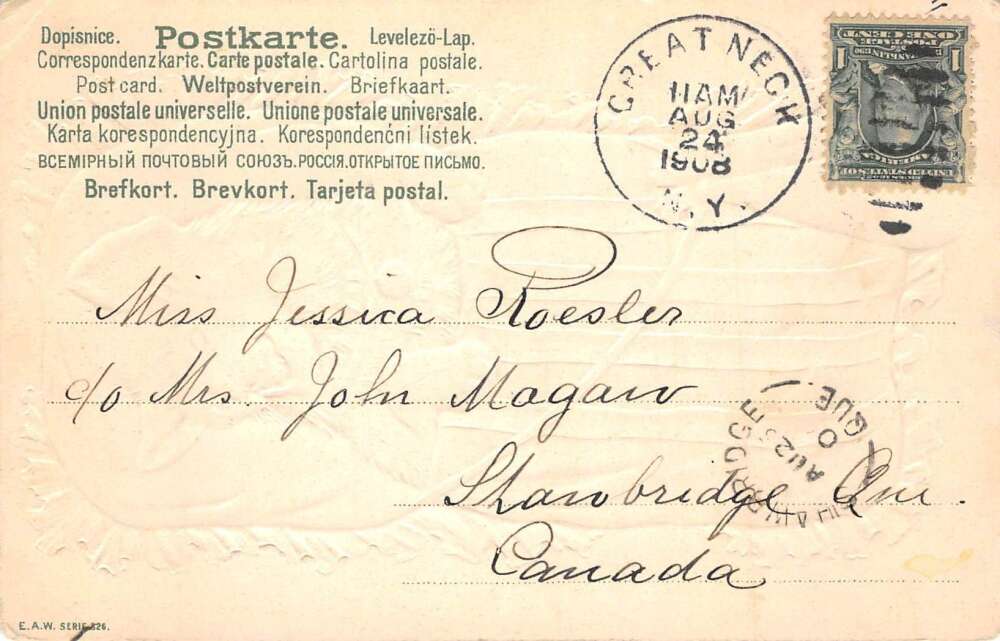 Dopisnice. Postkarte. Levelezö-Lap.
Correspondenzkarte. Carte postale. Cartolina postale.
Post card. Weltpostverein. Briefkaart.
Union postale universelle. Unione postale universale.
Karta korespondencyjna. Korespondenčni listek.
ВСЕМIРНЫЙ ПОЧТОВЫЙ СОЮЗЪ. РОССIЯ. ОТКРЫТОЕ ПИСЬМО.
Brefkort. Brevkort. Tarjeta postal.
GREAT NECK
11 AM
AUG
24
1908
N.Y.
1 POSTAGE 1
ONE CENT
FRANKLIN
UNITED STATES OF
AMERICA
Miss Jessica Roesler
c/o Mrs. John Magaw
Shawbridge Que.
Canada
SHAWBRIDGE
QUE
E.A.W. SERIE 326.